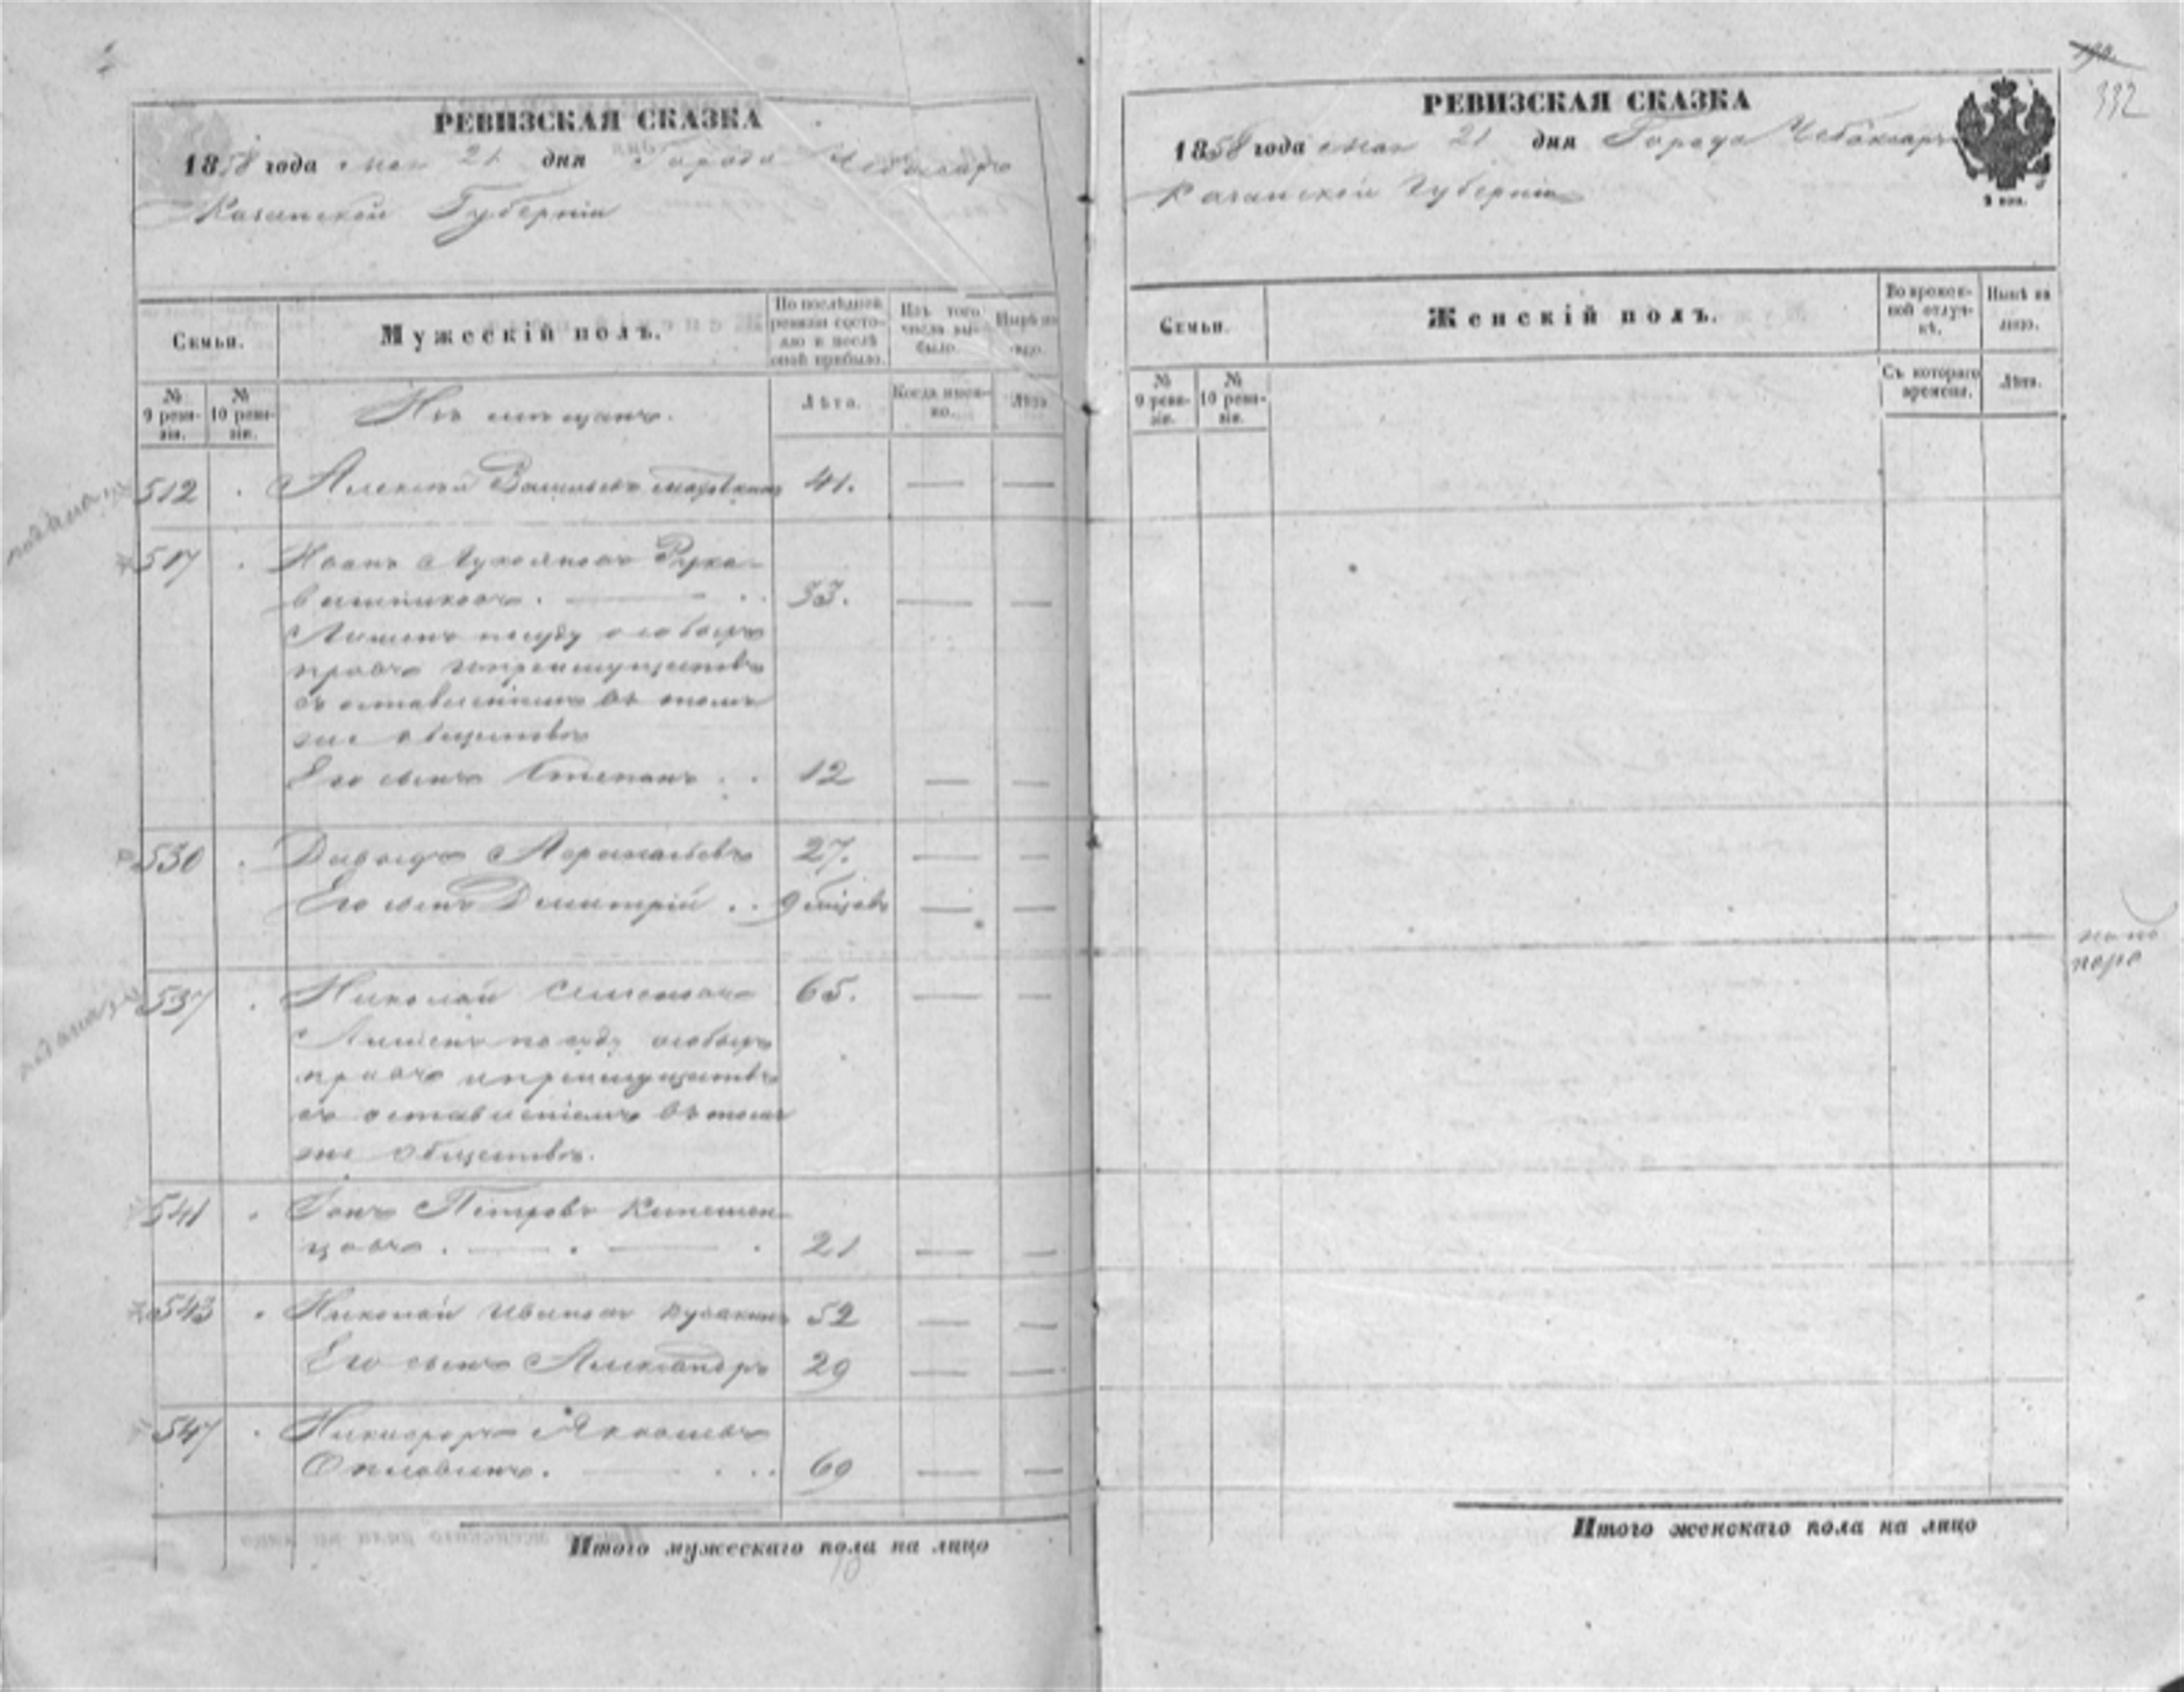 РЕВИЗСКАЯ СКАЗКА
1858 года мая 21 дня Города Чебоксаръ
Казанской Губерніи
Семьи.
Мужескій полъ.
По послѣдней ревизіи состояло и послѣ оной прибыло.
Изъ того числа выбыло.
Нынѣ на лицо.
№ 9 ревизіи.
№ 10 ревизіи.
Изъ мещанъ.
Лѣта.
Когда именно.
Лѣта.
512 Алексѣй Васильевъ 41.
517 Иванъ Лукояновъ Рука-
вишниковъ. 33.
Лишенъ по суду особыхъ
правъ и преимуществъ
съ оставленіемъ въ томъ
же обществѣ
Его сынъ Степанъ . . 12
530 Давыдъ 27.
Его сынъ Дмитрій . . 9
537 Николай Семеновъ 65.
Лишенъ по суду особыхъ
правъ и преимуществъ
съ оставленіемъ въ томъ
же обществѣ.
541 Іонъ Петровъ Кинешем-
цовъ. 21
543 Николай Ивановъ 52
Его сынъ Александръ 29
547 Никифоръ Яковлевъ
69
Итого мужескаго пола на лицо
10
332
РЕВИЗСКАЯ СКАЗКА
1858 года мая 21 дня Города Чебоксаръ
Казанской Губерніи
Семьи.
Женскій полъ.
Во временной отлучкѣ.
Нынѣ на лицо.
№ 9 ревизіи.
№ 10 ревизіи.
Съ котораго времени.
Лѣта.
Итого женскаго пола на лицо